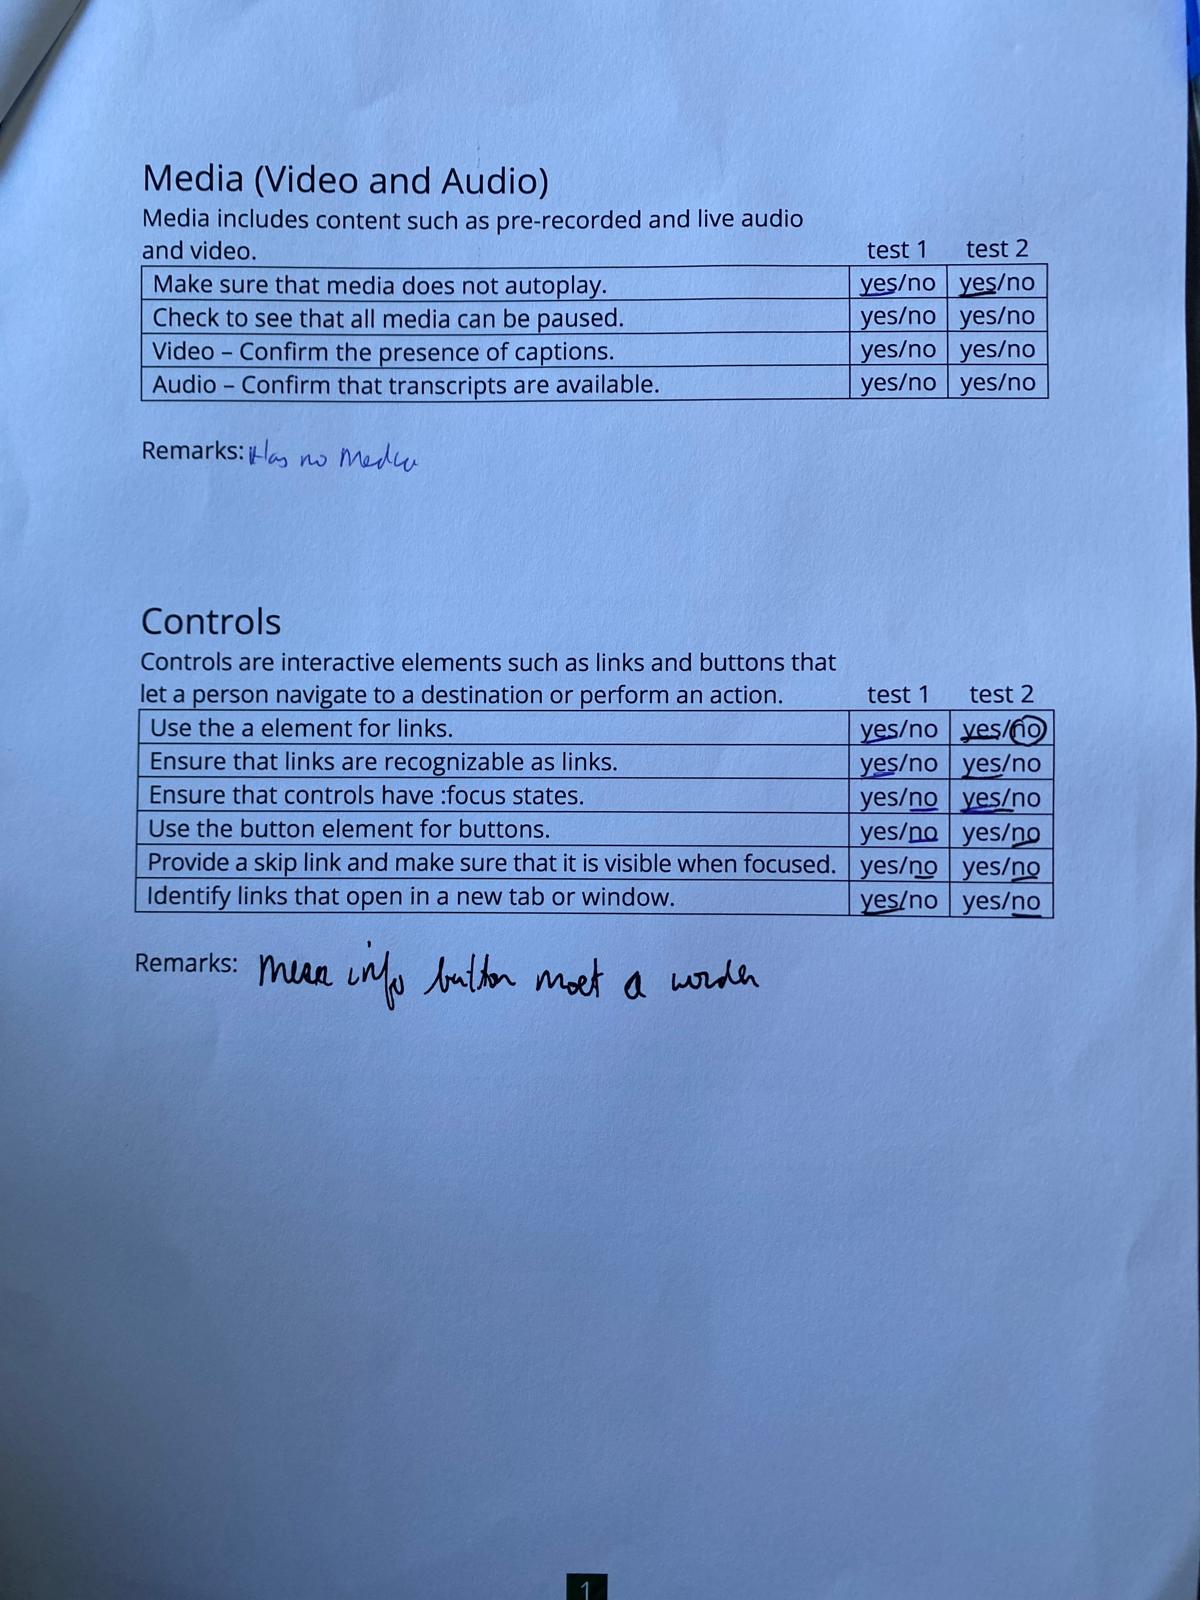 Media (Video and Audio)
Media includes content such as pre-recorded and live audio
and video. test 1 test 2
Make sure that media does not autoplay. yes/no yes/no
Check to see that all media can be paused. yes/no yes/no
Video – Confirm the presence of captions. yes/no yes/no
Audio – Confirm that transcripts are available. yes/no yes/no
Remarks: Has no Media
Controls
Controls are interactive elements such as links and buttons that
let a person navigate to a destination or perform an action. test 1 test 2
Use the a element for links. yes/no yes/no
Ensure that links are recognizable as links. yes/no yes/no
Ensure that controls have :focus states. yes/no yes/no
Use the button element for buttons. yes/no yes/no
Provide a skip link and make sure that it is visible when focused. yes/no yes/no
Identify links that open in a new tab or window. yes/no yes/no
Remarks: info button moet a
1